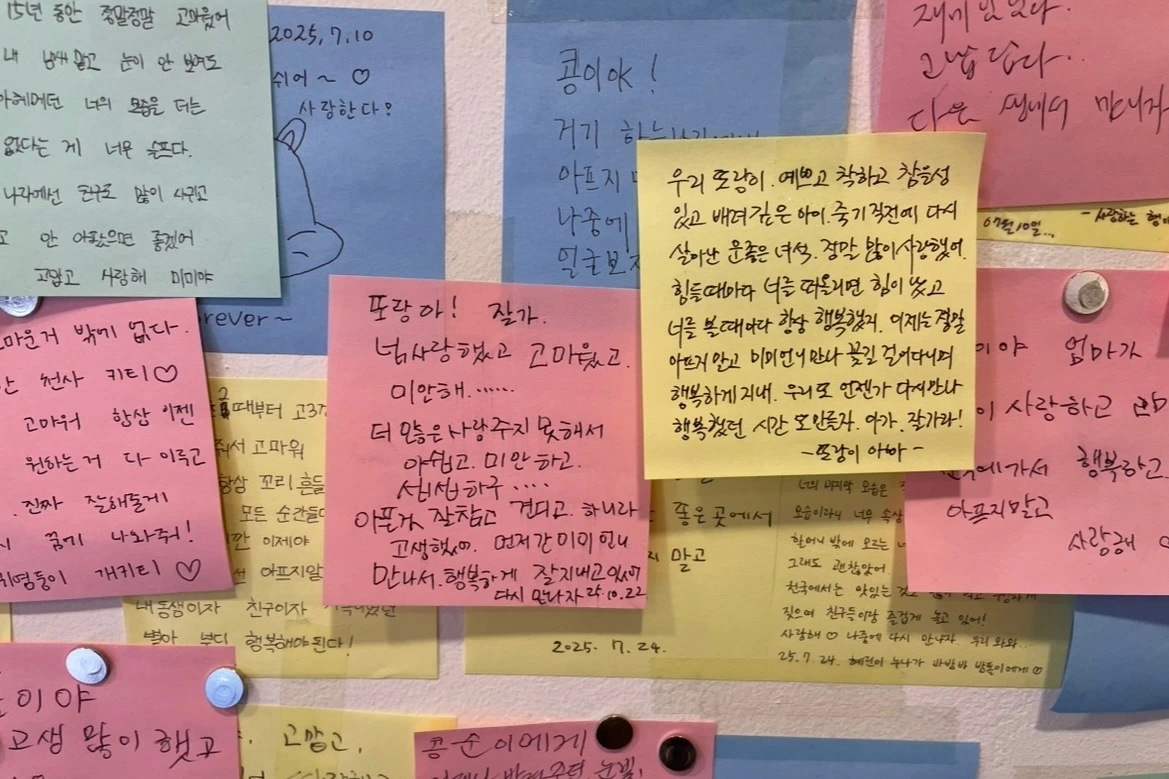 15년 동안 정말정말 고마웠어
내 냄새 맡고 눈이 안 보여도
너의 모습을 더는
없다는 게 너무 슬프다.
나라에선 친구도 많이 사귀고
안 아팠으면 좋겠어
고맙고 사랑해 미미야
2025.7.10
쉬어~ ♡
사랑한다?
orever~
콩이야!
거기
아프지
나중에
얼굴보자
고맙답다..
다음 생에서 만나자
07월 10일...
-사랑하는
우리 또랑이. 예쁘고 착하고 참을성
있고 배려깊은 아이. 죽기직전에 다시
살아난 운좋은 녀석. 정말 많이 사랑했어.
힘들때마다 너를 떠올리면 힘이 났고
너를 볼때마다 항상 행복했지. 이제는 정말
아프지 말고 미미언니 만나 꽃길 걸어다니며
행복하게 지내. 우리 또 언젠가 다시만나
행복했던 시간 또 만들자. 아가. 잘가라!
-또랑이 아빠-
또랑아! 잘가.
넘 사랑했고 고마웠고.
미안해......
더 많은 사랑 주지 못해서
아쉽고. 미안하고.
섭섭하구....
아픈거 잘참고 견디고. 하니라
고생했어. 먼저간 미미언니
만나서. 행복하게 잘지내고 있어
다시 만나자 25.10.22
고마운거 밖에 없다.
천사 키티♡
고마워 항상 이젠
원하는거 다 이루고
진짜 잘해줄게
꿈에 나와줘!
귀염둥이 개키티 ♡
때부터 고3
줘서 고마워
항상 꼬리 흔들
모든 순간들
이제야
아프지말
내동생이자 친구이자
별아 부디 행복해야 된다!
좋은 곳에서
말고
2025. 7. 24.
너의 마지막 모습은
모습이라니 너무 속상
할머니 밖에 모르는
그래도 괜찮았어
천국에서는 맛있는것
짖으며 친구들이랑 즐겁게 놀고 있어!
사랑해♡ 나중에 다시 만나자. 우리 와와...
25.7.24. 혜린이 누나가
이야 엄마가
사랑하고
행복하고
아프지말고
사랑해 ♡
이야
고생 많이 했고
고맙고,
콩순이에게